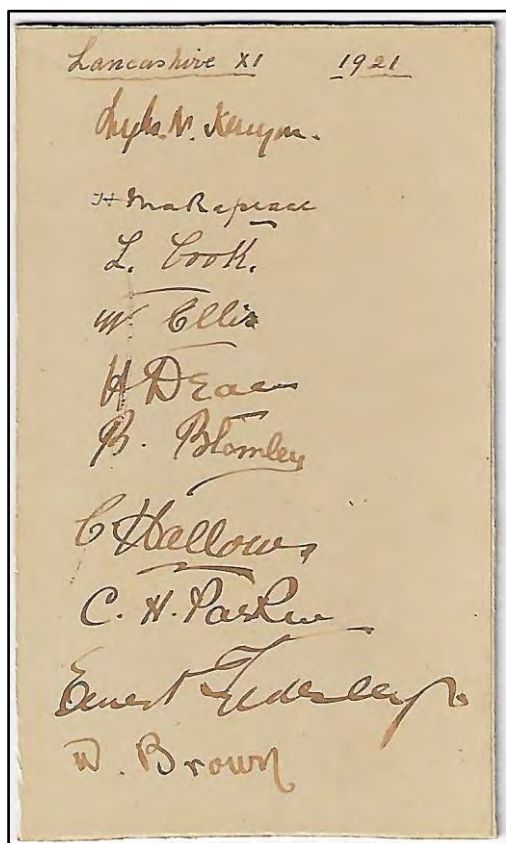 Lancashire XI 1921
Myles. N. Kenyon.
H Makepeace
L. Cook.
W Ellis
H Dean
B. Blomley
C Hallows
C. H. Parkin
Ernest Tyldesley.
W. Brown